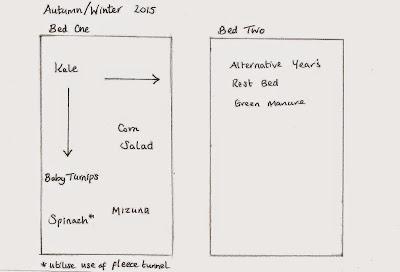 Autumn/Winter 2015
Bed One
Kale
Corn
Salad
Baby Turnips
Mizuna
Spinach*
*utilise use of fleece tunnel
Bed Two
Alternative Year's
Rest Bed
Green Manure